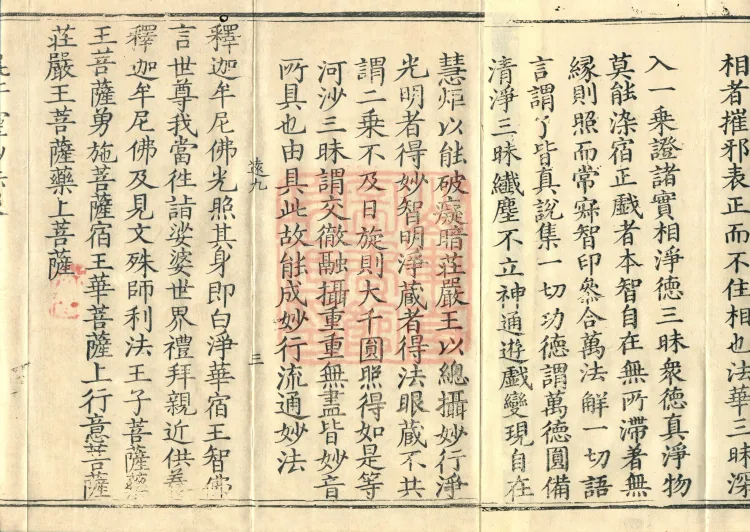 相者摧邪表正而不住相也法華三昧深
入一乘證諸實相淨德三昧衆德真淨物
莫能染宿王戲者本智自在無所滯着無
緣則照而常寂智印叅合萬法解一切語
言謂了皆真說集一切功德謂萬德圓備
清淨三昧纖塵不立神通遊戲變現自在
慧炬以能破癡暗莊嚴王以總攝妙行淨
光明者得妙智明淨藏者得法眼藏不共
謂二乘不及日旋則大千圓照得如是等
河沙三昧謂交徹融攝重重無盡皆妙音
所具也由具此故能成妙行流通妙法
遠九
三
釋迦牟尼佛光照其身即白淨華宿王智佛
言世尊我當往詣娑婆世界禮拜親近供養
釋迦牟尼佛及見文殊師利法王子菩薩藥
王菩薩勇施菩薩宿王華菩薩上行意菩薩
莊嚴王菩薩藥上菩薩